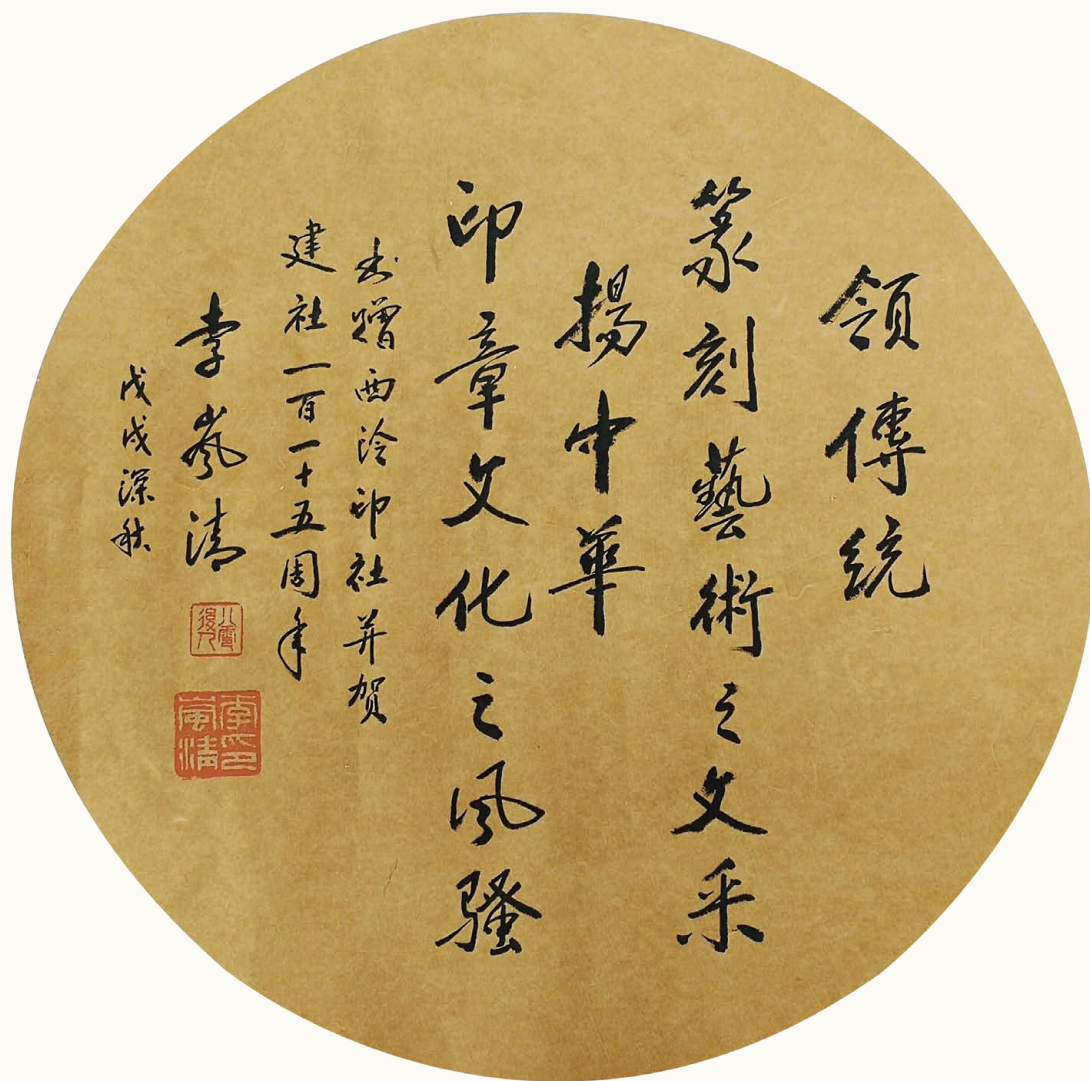 領傳統
篆刻藝術之文采
揚中華
印章文化之風騷
书贈西泠印社并贺
建社一百一十五周年
李嵐清
戊戌深秋
李嵐清印